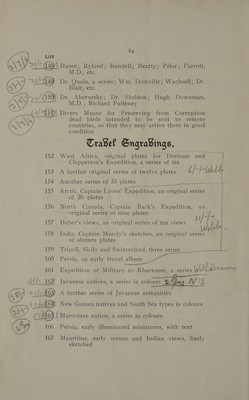 14
LOT
148 Hume; Ryland; Rundell; Beatty; Prior; Parrott,
M.D., etc.
149 Dr. Quain, a series; Wm. Domville; Wachsell; Dr.
Blair, etc.
150 Dr. Abernethy; Dr. Sheldon; Hugh Downman,
M.D.; Richard Pulteney
151 Divers Means for Preserving from Corruption
dead birds intended to be sent to remote
countries, so that they may arrive there in good
condition
Travel Engravings.
152 West Africa, original plates for Denham and
Clapperton's Expedition, a series of six
153 A further original series of twelve plates
154 Another series of 31 plates
155 Arctic, Captain Lyons' Expedition, an original series
of 26 plates
156 North Canada, Captain Back's Expedition, an
original series of nine plates
157 Heber's views, an original series of ten views
158 India, Captain Mundy's sketches, an original series
of sixteen plates
159 Tripoli, Sicily and Switzerland, three series
160 Persia, an early travel album
161 Expedition of Military to Khartoum, a series
162 Javanese natives, a series in colours
163 A further series of Javanese antiquities
164 New Guinea natives and South Sea types in colours
165 Marvoture nation, a series in colours
166 Persia, early illuminated miniatures, with text
167 Mauritius, early scenes and Indian views, finely
sketched